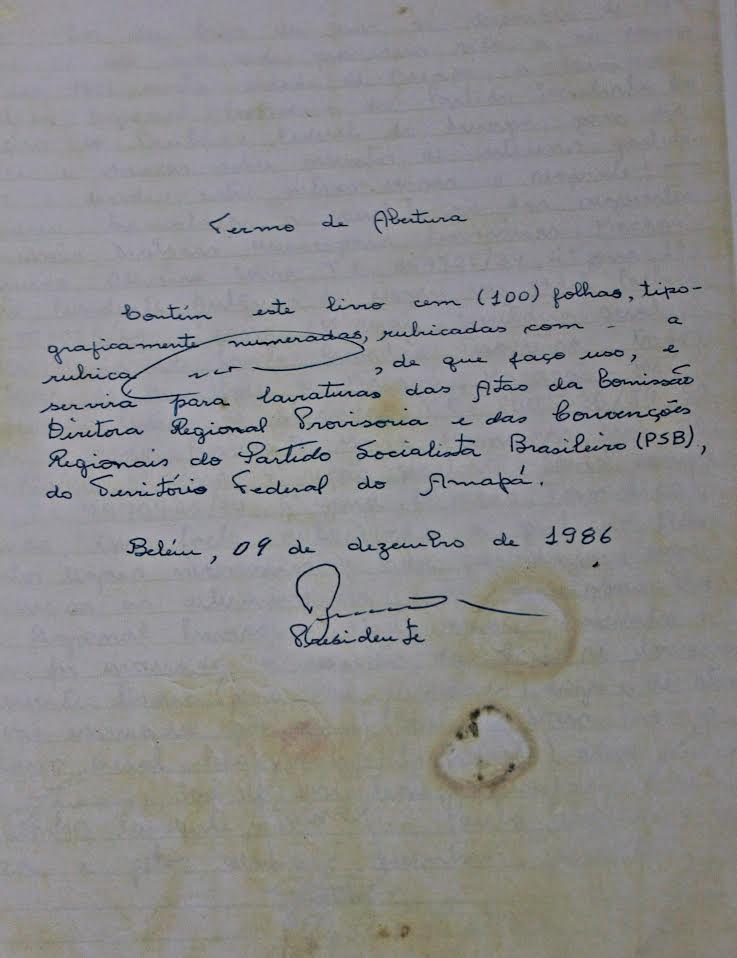 Termo de Abertura
Contém este livro cem (100) folhas, tipo-
graficamente numeradas, rubricadas com - a
rubrica , de que faço uso, e
servirá para lavraturas das Atas da Comissão
Diretora Regional Provisoria e das Convenções
Regionais do Partido Socialista Brasileiro (PSB),
do Território Federal do Amapá.
Belém, 09 de dezembro de 1986
Presidente